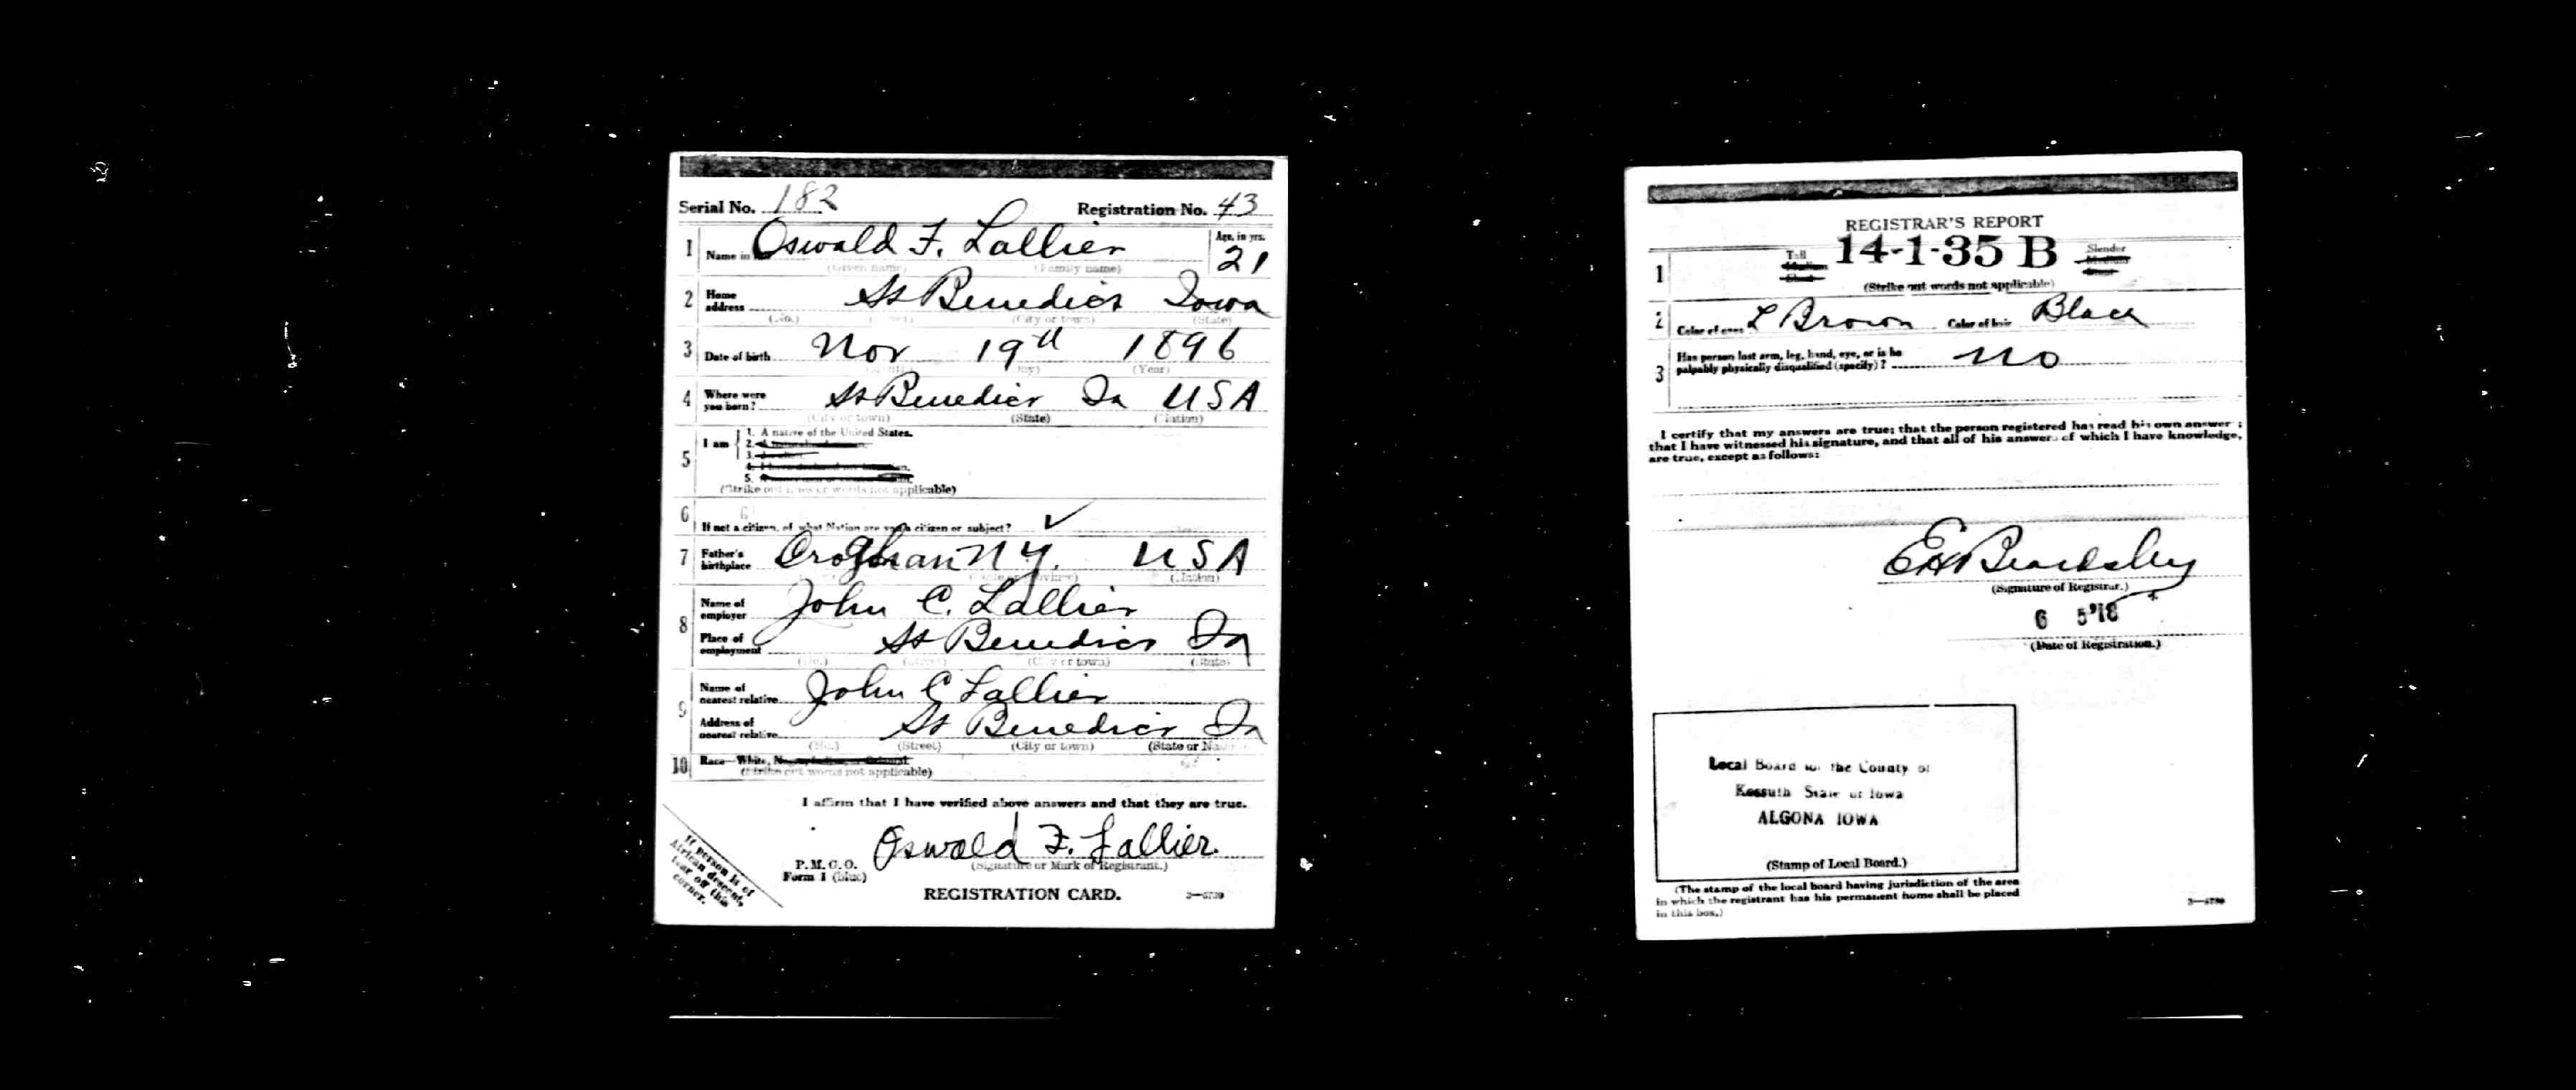 Serial No. 182 Registration No. 43
1 Name in Oswald F. Lallier Age, in yrs. 21
(Given name) (Family name)
2 Home address St Benedict Iowa
(No.) (Street) (City or town) (State)
3 Date of birth Nov 19th 1896
(Month) (Day) (Year)
4 Where were you born? St Benedict Ia USA
(City or town) (State) (Nation)
5 I am 1. A native of the United States.
2.
3.
4.
5.
(Strike out lines or words not applicable)
6 If not a citizen, of what Nation are you a citizen or subject? ✓
7 Father's birthplace Croghan N Y. USA
(Nation)
8 Name of employer John C. Lallier
Place of employment St Benedict Ia
(No.) (Street) (City or town) (State)
9 Name of nearest relative John C Lallier
Address of nearest relative St Benedict Ia
(No.) (Street) (City or town) (State or Nation)
10 Race—White,
(Strike out words not applicable)
I affirm that I have verified above answers and that they are true.
P.M.G.O. Form 1 (blue) Oswald F. Lallier
(Signature or Mark of Registrant.)
If person is of African descent, tear off this corner.
REGISTRATION CARD. 3—6739
REGISTRAR'S REPORT
1 Tall 14-1-35 B Slender
(Strike out words not applicable)
2 Color of eyes L Brown Color of hair Black
3 Has person lost arm, leg, hand, eye, or is he
palpably physically disqualified (specify)? no
I certify that my answers are true; that the person registered has read his own answers;
that I have witnessed his signature, and that all of his answers of which I have knowledge,
are true, except as follows:
E H Beardsley
(Signature of Registrar.)
6 5 '18
(Date of Registration.)
Local Board for the County of
Kossuth State of Iowa
ALGONA IOWA
(Stamp of Local Board.)
(The stamp of the local board having jurisdiction of the area
in which the registrant has his permanent home shall be placed
in this box.)
3—6739